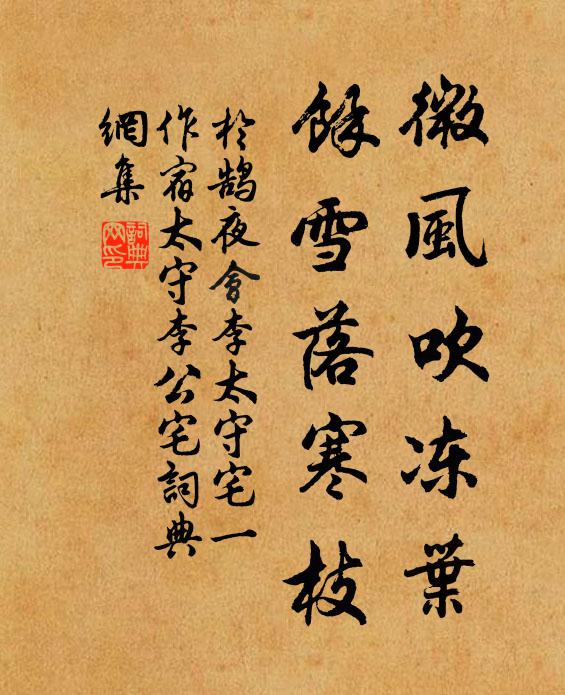 微風吹冻葉
餘雪落寒枝
於鵠夜會李太守宅一
作宿太守李公宅詞典
網集
詞典
网印